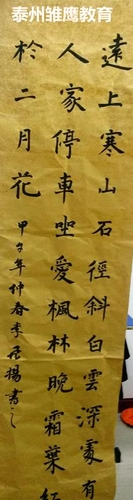 泰州雏鹰教育
遠上寒山石徑斜白雲深處有
人家停車坐愛楓林晚霜葉紅
扵二月花
甲午年仲春李揚書